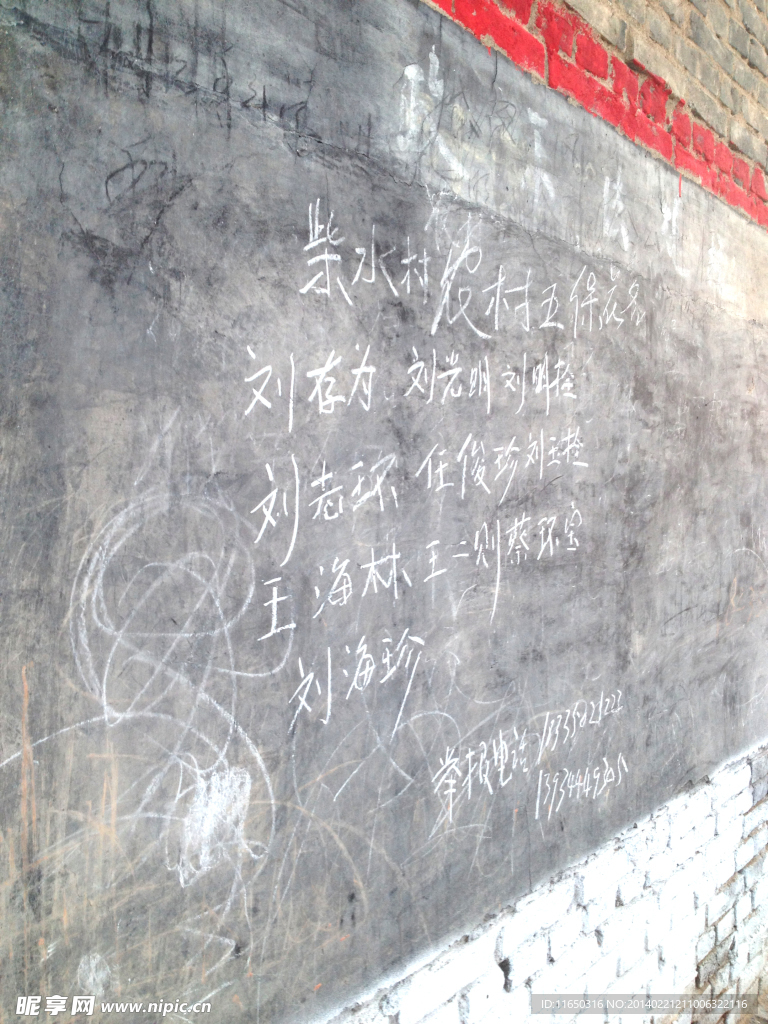 柴水村农村五保花名
刘存为 刘光明 刘明拴
刘志环 任俊珍 刘玉拴
王海林 王二则 蔡环宝
刘海珍
举报电话
昵享网 www.nipic.cn
ID:11650316 NO:20140221211006322116